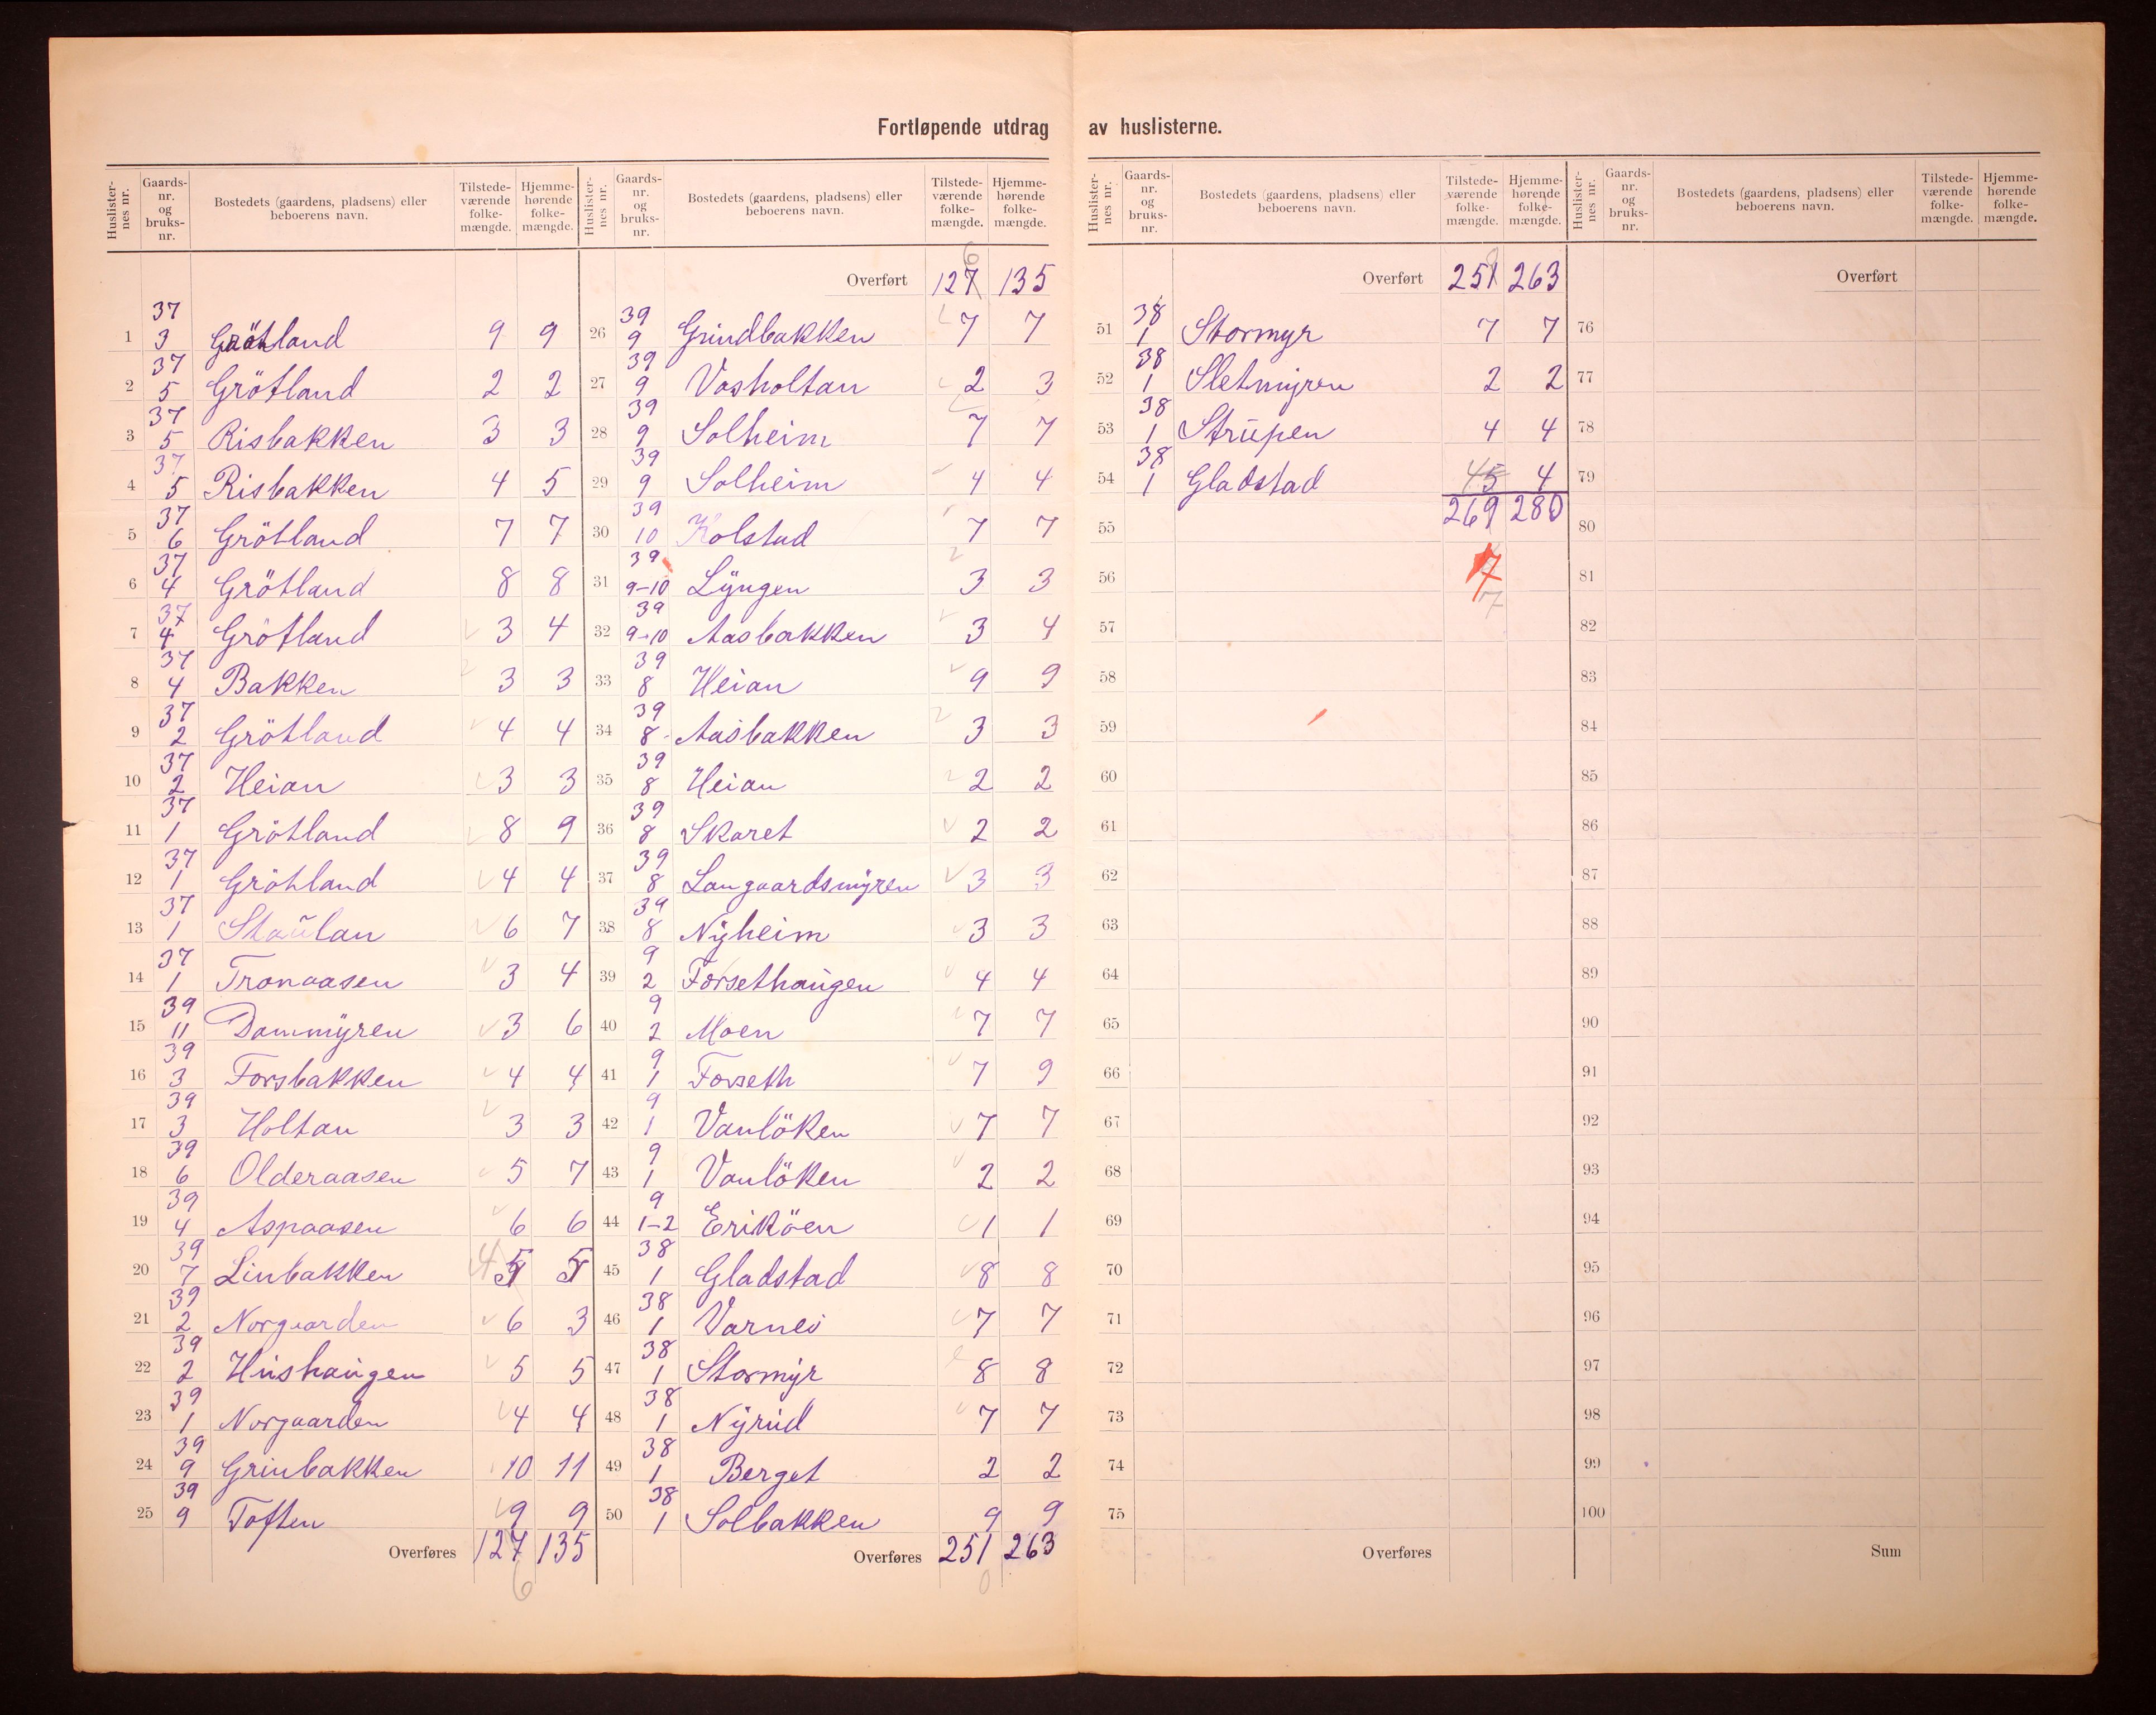 Fortløpende utdrag av huslisterne.
Huslisternes nr. Gaardsnr. og bruksnr. Bostedets (gaardens, pladsens) eller beboerens navn. Tilstedeværende folkemængde. Hjemmehørende folkemængde.
1 37 3 Grötland 9 9
2 37 5 Grötland 2 2
3 37 5 Risbakken 3 3
4 37 5 Risbakken 4 5
5 37 6 Grötland 7 7
6 37 4 Grötland 8 8
7 37 4 Grötland 3 4
8 37 4 Bakken 3 3
9 37 2 Grötland 4 4
10 37 2 Heian 3 3
11 37 1 Grötland 8 9
12 37 1 Grötland 4 4
13 37 1 Staulan 6 7
14 37 1 Tronaasen 3 4
15 39 11 Dammyren 3 6
16 39 3 Forsbakken 4 4
17 39 3 Holtan 3 3
18 39 6 Olderaasen 5 7
19 39 4 Aspaasen 6 6
20 39 7 Linbakken 4 5 5
21 39 2 Norgaarden 6 3
22 39 2 Hushaugen 5 5
23 39 1 Norgaarden 4 4
24 39 9 Grinbakken 10 11
25 39 9 Toften 9 9
Overføres 127 135
6
Huslisternes nr. Gaardsnr. og bruksnr. Bostedets (gaardens, pladsens) eller beboerens navn. Tilstedeværende folkemængde. Hjemmehørende folkemængde.
6
Overført 127 135
26 39 9 Grindbakken 7 7
27 39 9 Vasholtan 2 3
28 39 9 Solheim 7 7
29 39 9 Solheim 4 4
30 39 10 Kolstad 7 7
31 39 9-10 Lyngen 3 3
32 39 9-10 Aasbakken 3 4
33 39 8 Heian 9 9
34 39 8 Aasbakken 3 3
35 39 8 Heian 2 2
36 39 8 Skaret 2 2
37 39 8 Langaardsmyren 3 3
38 39 8 Nyheim 3 3
39 9 2 Forsethaugen 4 4
40 9 2 Moen 7 7
41 9 1 Forseth 7 9
42 9 1 Vanlöken 7 7
43 9 1 Vanlöken 2 2
44 9 1-2 Eriköen 1 1
45 38 1 Gladstad 8 8
46 38 1 Varnes 7 7
47 38 1 Stormyr 8 8
48 38 1 Nyrud 7 7
49 38 1 Berget 2 2
50 38 1 Solbakken 9 9
Overføres 251 263
0
Huslisternes nr. Gaardsnr. og bruksnr. Bostedets (gaardens, pladsens) eller beboerens navn. Tilstedeværende folkemængde. Hjemmehørende folkemængde.
Overført 251 263
51 38 1 Stormyr 7 7
52 38 1 Sletmyren 2 2
53 38 1 Strupen 4 4
54 38 1 Gladstad 4 5 4
55 269 280
56 7
7
57
58
59
60
61
62
63
64
65
66
67
68
69
70
71
72
73
74
75
Overføres
Huslisternes nr. Gaardsnr. og bruksnr. Bostedets (gaardens, pladsens) eller beboerens navn. Tilstedeværende folkemængde. Hjemmehørende folkemængde.
Overført
76
77
78
79
80
81
82
83
84
85
86
87
88
89
90
91
92
93
94
95
96
97
98
99
100
Sum